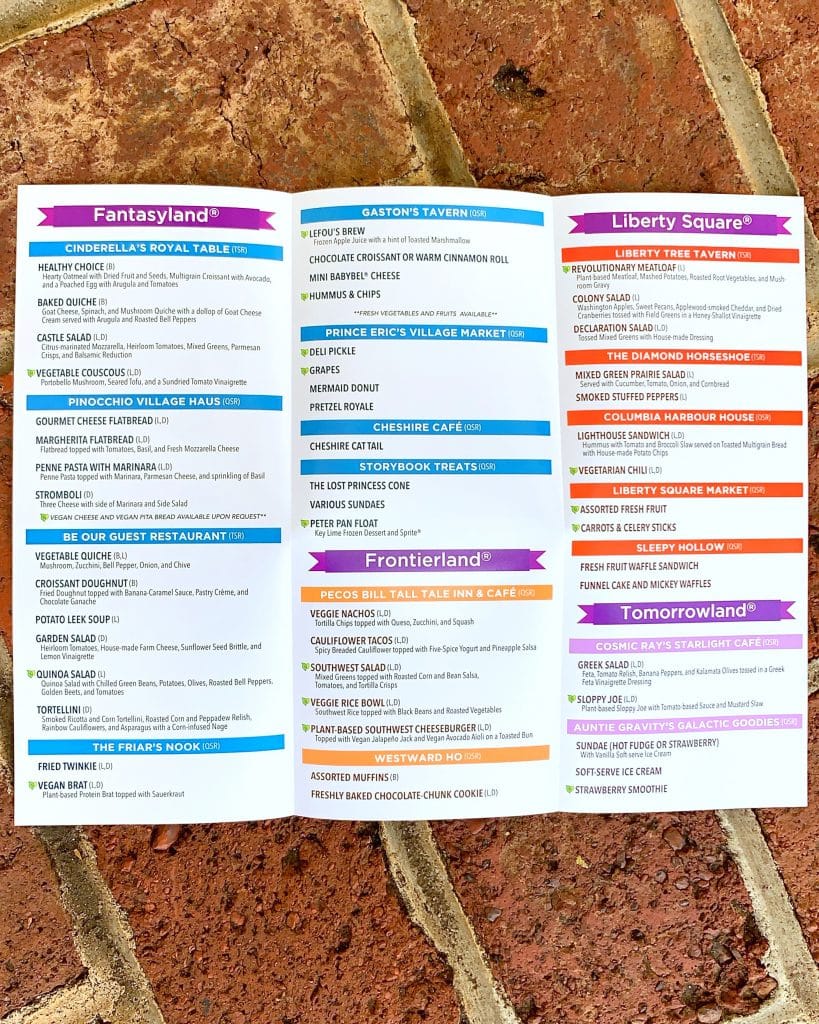 Fantasyland®
CINDERELLA'S ROYAL TABLE (TSR)
HEALTHY CHOICE (B)
Hearty Oatmeal with Dried Fruit and Seeds, Multigrain Croissant with Avocado,
and a Poached Egg with Arugula and Tomatoes
BAKED QUICHE (B)
Goat Cheese, Spinach, and Mushroom Quiche with a dollop of Goat Cheese
Cream served with Arugula and Roasted Bell Peppers
CASTLE SALAD (L,D)
Citrus-marinated Mozzarella, Heirloom Tomatoes, Mixed Greens, Parmesan
Crisps, and Balsamic Reduction
VEGETABLE COUSCOUS (L,D)
Portobello Mushroom, Seared Tofu, and a Sundried Tomato Vinaigrette
PINOCCHIO VILLAGE HAUS (QSR)
GOURMET CHEESE FLATBREAD (L,D)
MARGHERITA FLATBREAD (L,D)
Flatbread topped with Tomatoes, Basil, and Fresh Mozzarella Cheese
PENNE PASTA WITH MARINARA (L,D)
Penne Pasta topped with Marinara, Parmesan Cheese, and sprinkling of Basil
STROMBOLI (D)
Three Cheese with side of Marinara and Side Salad
VEGAN CHEESE AND VEGAN PITA BREAD AVAILABLE UPON REQUEST**
BE OUR GUEST RESTAURANT (TSR)
VEGETABLE QUICHE (B,L)
Mushroom, Zucchini, Bell Pepper, Onion, and Chive
CROISSANT DOUGHNUT (B)
Fried Doughnut topped with Banana-Caramel Sauce, Pastry Crème, and
Chocolate Ganache
POTATO LEEK SOUP (L)
GARDEN SALAD (D)
Heirloom Tomatoes, House-made Farm Cheese, Sunflower Seed Brittle, and
Lemon Vinaigrette
QUINOA SALAD (L)
Quinoa Salad with Chilled Green Beans, Potatoes, Olives, Roasted Bell Peppers,
Golden Beets, and Tomatoes
TORTELLINI (D)
Smoked Ricotta and Corn Tortellini, Roasted Corn and Peppadew Relish,
Rainbow Cauliflower, and Asparagus with a Corn-infused Nage
THE FRIAR'S NOOK (QSR)
FRIED TWINKIE (L,D)
VEGAN BRAT (L,D)
Plant-based Protein Brat topped with Sauerkraut
GASTON'S TAVERN (QSR)
LEFOU'S BREW
Frozen Apple Juice with a hint of Toasted Marshmallow
CHOCOLATE CROISSANT OR WARM CINNAMON ROLL
MINI BABYBEL® CHEESE
HUMMUS & CHIPS
**FRESH VEGETABLES AND FRUITS AVAILABLE**
PRINCE ERIC'S VILLAGE MARKET (QSR)
DELI PICKLE
GRAPES
MERMAID DONUT
PRETZEL ROYALE
CHESHIRE CAFÉ (QSR)
CHESHIRE CAT TAIL
STORYBOOK TREATS (QSR)
THE LOST PRINCESS CONE
VARIOUS SUNDAES
PETER PAN FLOAT
Key Lime Frozen Dessert and Sprite®
Frontierland®
PECOS BILL TALL TALE INN & CAFÉ (QSR)
VEGGIE NACHOS (L,D)
Tortilla Chips topped with Queso, Zucchini, and Squash
CAULIFLOWER TACOS (L,D)
Spicy Breaded Cauliflower topped with Five-Spice Yogurt and Pineapple Salsa
SOUTHWEST SALAD (L,D)
Mixed Greens topped with Roasted Corn and Bean Salsa,
Tomatoes, and Tortilla Crisps
VEGGIE RICE BOWL (L,D)
Southwest Rice topped with Black Beans and Roasted Vegetables
PLANT-BASED SOUTHWEST CHEESEBURGER (L,D)
Topped with Vegan Jalapeño Jack and Vegan Avocado Aioli on a Toasted Bun
WESTWARD HO (QSR)
ASSORTED MUFFINS (B)
FRESHLY BAKED CHOCOLATE-CHUNK COOKIE (L,D)
Liberty Square®
LIBERTY TREE TAVERN (TSR)
REVOLUTIONARY MEATLOAF (L)
Plant-based Meatloaf, Mashed Potatoes, Roasted Root Vegetables, and Mush-
room Gravy
COLONY SALAD (L)
Washington Apples, Sweet Pecans, Applewood-smoked Cheddar, and Dried
Cranberries tossed with Field Greens in a Honey Shallot Vinaigrette
DECLARATION SALAD (L,D)
Tossed Mixed Greens with House-made Dressing
THE DIAMOND HORSESHOE (TSR)
MIXED GREEN PRAIRIE SALAD (L)
Served with Cucumber, Tomato, Onion, and Cornbread
SMOKED STUFFED PEPPERS (L)
COLUMBIA HARBOUR HOUSE (QSR)
LIGHTHOUSE SANDWICH (L,D)
Hummus with Tomato and Broccoli Slaw served on Toasted Multigrain Bread
with House-made Potato Chips
VEGETARIAN CHILI (L,D)
LIBERTY SQUARE MARKET (QSR)
ASSORTED FRESH FRUIT
CARROTS & CELERY STICKS
SLEEPY HOLLOW (QSR)
FRESH FRUIT WAFFLE SANDWICH
FUNNEL CAKE AND MICKEY WAFFLES
Tomorrowland®
COSMIC RAY'S STARLIGHT CAFÉ (QSR)
GREEK SALAD (L,D)
Feta, Tomato Relish, Banana Peppers, and Kalamata Olives tossed in a Greek
Feta Vinaigrette Dressing
SLOPPY JOE (L,D)
Plant-based Sloppy Joe with Tomato-based Sauce and Mustard Slaw
AUNTIE GRAVITY'S GALACTIC GOODIES (QSR)
SUNDAE (HOT FUDGE OR STRAWBERRY)
With Vanilla Soft-serve Ice Cream
SOFT-SERVE ICE CREAM
STRAWBERRY SMOOTHIE